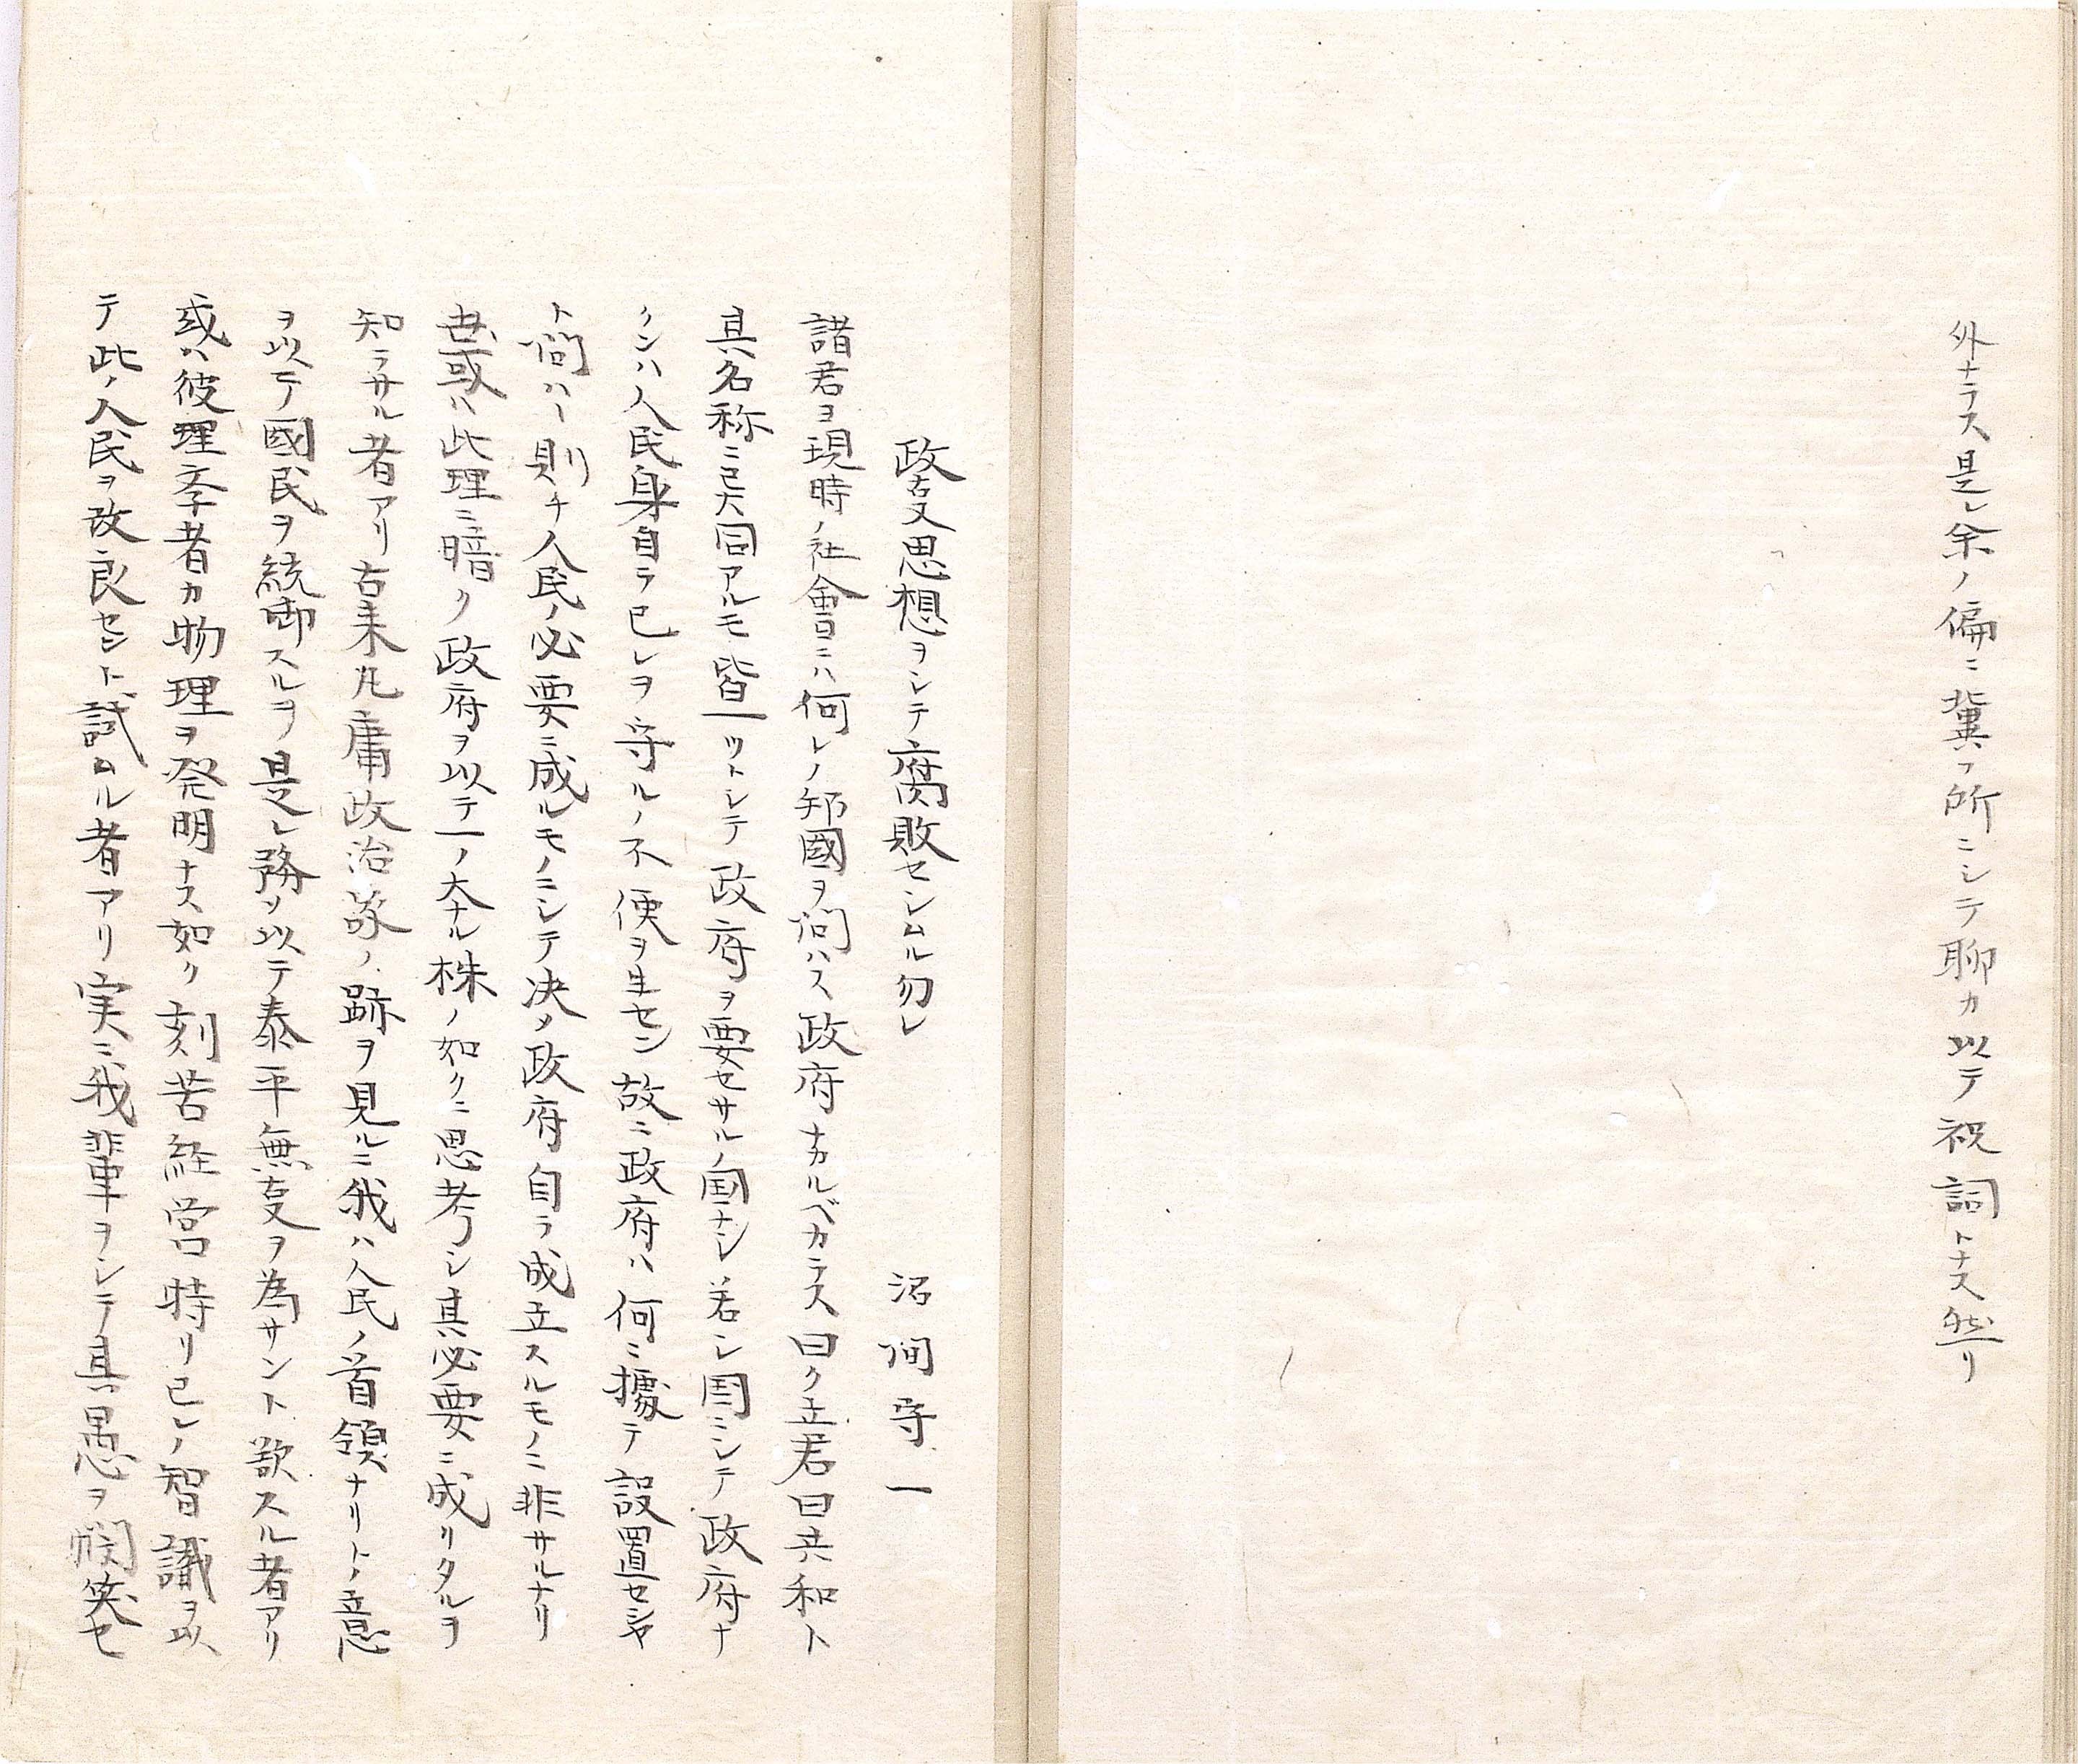 外ナラス是レ余ノ偏ニ冀フ所ニシテ聊カ以テ祝詞トナス然リ
政叓思想ヲシテ腐敗セシムル勿レ
沼間守一
諸君ヨ現時ノ社會ニハ何レノ邦國ヲ問ハス政府ナカルベカラス曰ク立君曰共和ト
其名称ニ異同アルモ皆一ツトシテ政府ヲ要セサルノ国ナシ若シ国ニシテ政府ナ
クンハ人民身自ラ已レヲ守ルノ不便ヲ生セン故ニ政府ハ何ニ據テ設置セシヤ
ト問ハヽ則チ人民ノ必要ニ成ルモノニシテ决シ政府自ラ成立スルモノニ非サルナリ
世或ハ此理ニ暗ク政府ヲ以テ一ノ大ナル株ノ如クニ思考シ其必要ニ成リタルヲ
知ラサル者アリ古来凡庸政治家ノ跡ヲ見ルニ我ハ人民ノ首領ナリトノ意
ヲ以テ國民ヲ統御スルヲ是レ務メ以テ泰平無叓ヲ為サント欲スル者アリ
或ハ彼理斈者カ物理ヲ発明ナス如ク刻苦経営特リ已レノ智識ヲ以
テ此ノ人民ヲ改良セント試ムル者アリ実ニ我輩ヲシテ其愚ヲ憫笑セ